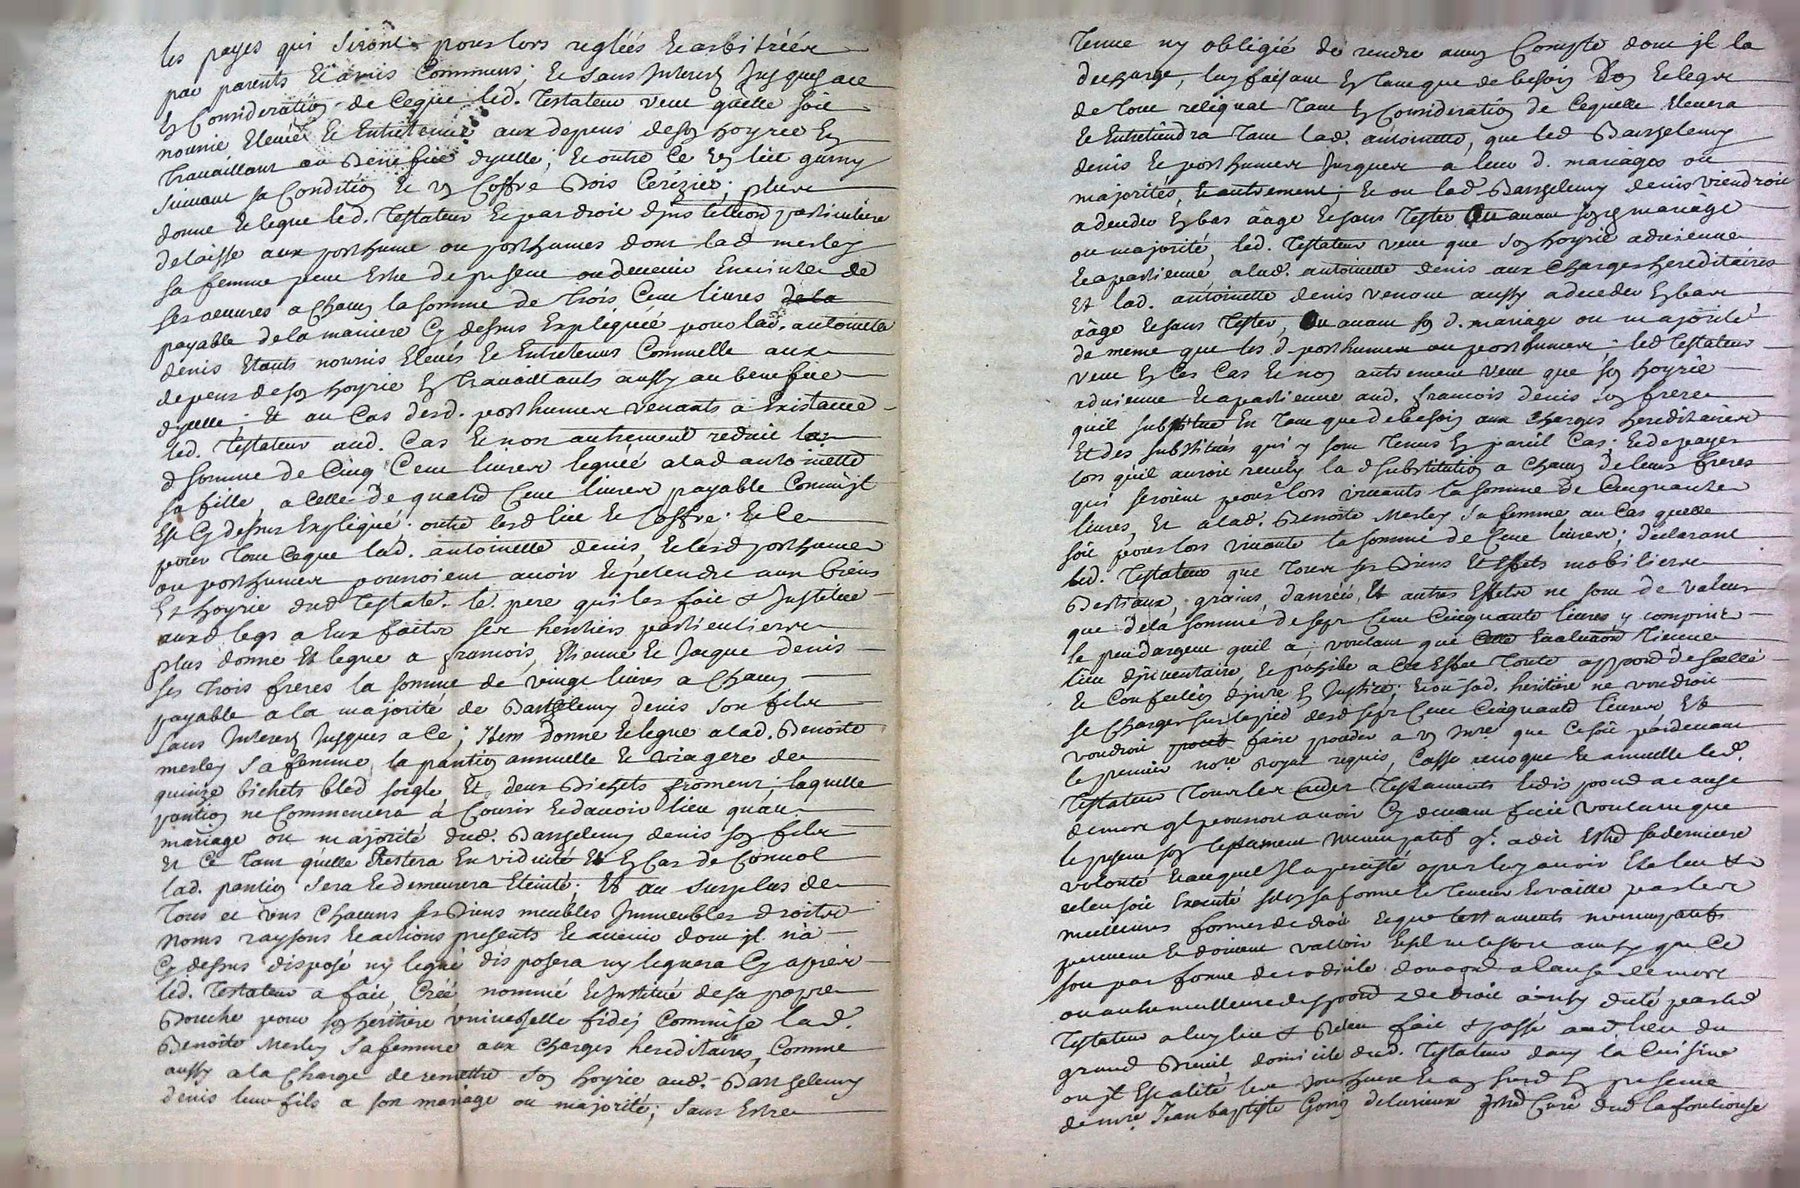 les payes qui seront pour lors reglées et arbitrées
par parents et amis Communs; et sans Interest Jusques a ce
En Consideration de ceque led. Testateur veut quelle soit
nourrie Elevée et Entretenue aux depens de son hoyrie En
Travaillant au Benefice dycelle; et outre ce un lict garny
suivant sa Condition et un Coffre Bois Cerizier; plus
donne et legue led. Testateur et par droit dinstitution particuliere
delaisse aux posthume ou posthumes dont lad. merley
sa femme peut Estre de present ou devenir Enceinte de
ses oeuvres a Chacun la somme de trois Cent livres de la
payable de la maniere Cy dessus Expliquée pour lad. antoinette
denis Etants nourris Elevés et Entretenus Comm'elle aux
depens de son hoyrie En travaillants aussy au benefice
dycelle; et au Cas desd. posthumes venants à Existance
led. Testateur aud. Cas et non autrement reduit la
d. somme de Cinq Cent livres leguée a lad antoinette
sa fille, a Celle de quatre Cent livres payable Comm'il
Est Cy dessus Expliqué: outre lesd lict et Coffre. Et Ce
pour tout Ceque lad. antoinette denis, et lesd posthume
ou posthumes pourroient avoir et pretendre aux biens
Et hoyrie dud Testatr. le pere qui les fait & Institue
auxd legs a Eux faits ses heritiers particuliers
plus donne et legue a francois, Etienne et Jacque denis
ses trois freres la somme de vingt livres a Chacun
payable a la majorité de Barthelemy denis son fils
sans Interest Jusques a Ce; Item donne et legue a lad. Benoite
merley sa femme, la pantion annuelle et viagere de
quinze bichets bled seigle et deux Bichets froment; laquelle
pantion ne Commencera à Courir et d'avoir lieu qu'au
mariage ou majorité dud. Barthelemy denis son fils
et Ce tant quelle Restera En viduité et En Cas de Convol
lad. pantion sera et demeurera Eteinte; Et au surplus de
Tous et uns Chacuns ses Biens meubles Immeubles droits
noms raysons et actions presents et avenir dont jl n'a
Cy dessus disposé ny legué disposera ny leguera Cy apres
led. Testateur a fait, Créé nommé et Institué de sa propre
Bouche pour son heritiere universelle fidei Commise lad.
Benoite Merley sa femme aux Charges hereditaires, Comme
aussy a la Charge de remettre son hoyrie aud. Barthelemy
denis leur fils a son mariage ou majorité; sans Estre
Tenue ny obligée de rendre aucun Compte dont jl la
decharge, luy faisant En tant que de besoin Don et legs
de tout reliquat tant En Consideration de Cequelle Elevera
et Entretiendra tant lad. antoinette, que led Barthelemy
denis et posthumes Jusques a leur d. mariages ou
majorités, et autrement; et ou lad Barthelemy denis viendroit
a deceder En bas âage et sans Tester Ou avant son mariage
ou majorité, led. Testateur veut que son hoyrie advienne
et apartienne a lad. antoinette denis aux Charges hereditaires
Et lad. antoinette denis venant aussy a deceder En bas
âage et sans Tester, Ou avant son d. mariage ou majorité
de meme que les d. posthumes ou posthumes; led Testateur
veut En Ces Cas et non autrement veut que son hoyrie
advienne et apartienne aud. francois denis son frere
qu'il substitue En tant que de besoin aux Charges hereditaires
Et des substitués qui y sont tenus En pareil Cas; et de payer
lors qu'il auroit recueilly la d substitution a Chacun de leurs freres
qui seroient pour lors vivants la somme de Cinquante
livres, et a lad. Benoite Merley sa femme au Cas quelle
soit pour lors vivante la somme de Cent livres; declarant
led. Testateur que tous ses Biens Et Effets mobiliers
Bestiaux, grains, danrées, Et autres Effets ne sont de valeur
que de la somme de sept Cent Cinquante livres y compris
le peu d'argent quil a, voulant que cette Evaluaon tienne
lieu d'inventaire, et prohibe a Cet Effet toute apposon de scellé
et Confection d'invre En Justice; et ou sad. heritiere ne voudroit
se Charger sur le pied desd sept Cent Cinquante livres Et
voudroit faire proceder a un Invre que Ce soit pardevant
le premier nore Royal requis, Casse revoque et annulle led.
Testateur tous les autres Testaments et disposons a cause
de mort ql pourroit avoir Cy devant fait voulant que
le present son Testament nuncupatif qi. a dit Estre sa derniere
volonté Et auquel Il a percisté apres luy avoir Eté leu &
releu soit Executé selon sa forme et teneur et vaille par les
meilleures formes de droit et que testaments nuncupatifs
peuvent et doivent valloir Et sil ne l'estoit ainsy que Ce
soit par forme de codicile donaon a cause de mort
ou autre meilleure disposon de droit ainsy dicté par led
Testateur a luy leu & Releu fait & passé aud. lieu du
grand Breuil domicile dud. Testateur dans la Cuisine
de mre. Jean baptiste Curé dud la fouliouse